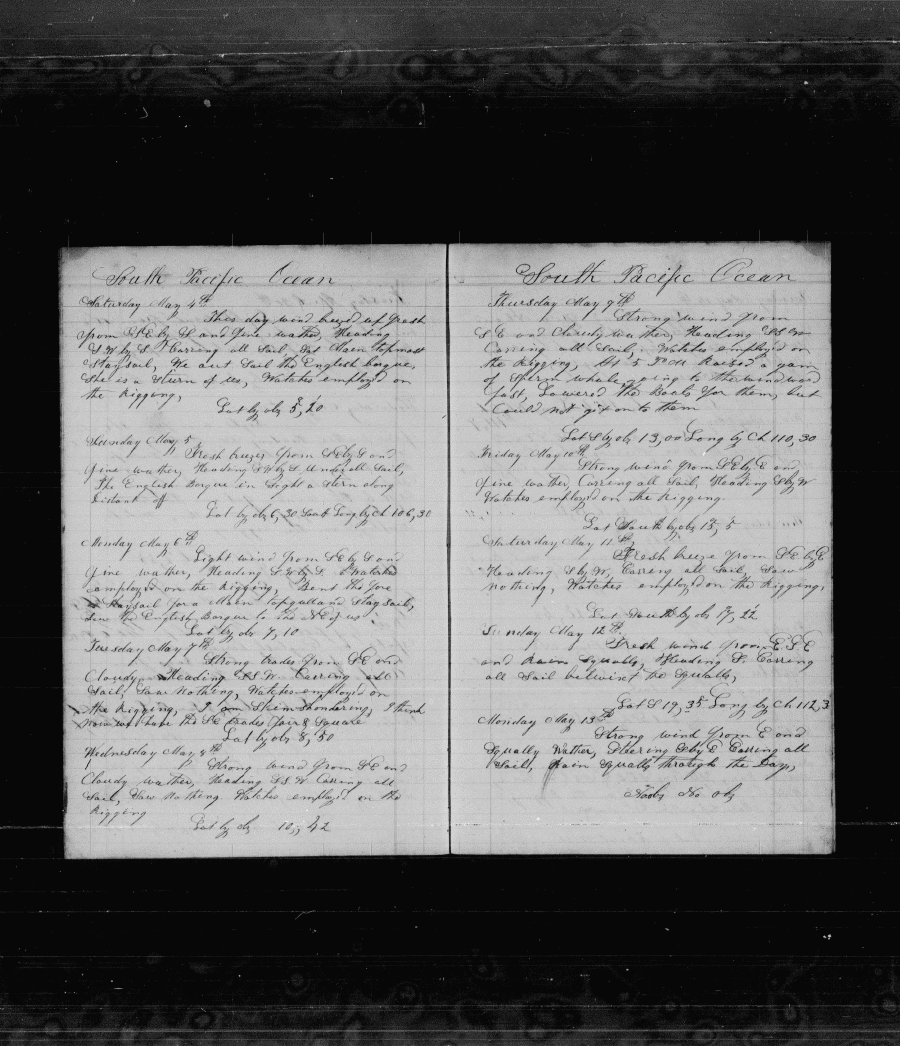 South Pacific Ocean
Saturday May 4th
This day wind breezed up fresh
from SE by S and fine wather, Heading
SW by S. Carring all Sail Set Main topmost
Staysail, We out Sail the English barque,
She is a Sturn of us, Watches employed on
the Rigging,
Lat by obs 5,, 20
Sunday May 5
Fresh breezes from SE by S and
fine wather, Heading SW by S Under all Sail,
The English Barque in Sight a Stern long
Distant off
Lat by obs 6,, 30 South Long by Ch 106,, 30
Monday May 6th
Light wind from SE by S and
fine wather, Heading SW by S Watches
employed on the Rigging, Bent the fore
Staysail for a Main topgalland Staysail,
Saw the English Barque to the NE of us
Lat by obs 7,, 10
Tuesday May 7th
Strong trades from SE and
Cloudy Heading SSW Carring all
Sail, Saw Nothing, Watches employed on
the Rigging, I am Skimshondering, I think
now we have the SE trades fair & Square
Lat by obs 8,, 50
Wednesday May 8th
Strong wind from SE and
Cloudy wather, Heading SSW Carring all
Sail, Saw Nothing Watches employed on the
Rigging
Lat by obs 10,, 42
South Pacific Ocean
Thursday May 9th
Strong wind from
SE and Cloudy wather, Heading SSW
Carring all Sail, Watches employed on
the Rigging, At 5 PM Raised a gam
of Sperm whale going to the windward
fast, Lowered the Boats for them, but
Could not get on to them
Lat S by obs 13,, 00 Long by Ch 110,, 30
Friday May 10th
Strong wind from SE by E and
fine wather, Carring all Sail, Heading S by W
Watches employed on the Rigging.
Lat South by obs 15,, 5
Saturday May 11th
Fresh breeze from SE by E
Heading S by W, Carring all Sail, Saw
nothing, Watches employed on the Rigging,
Lat South by obs 17,, 22
Sunday May 12th
Fresh wind from ESE
and Rain Squalls, Heading S. Carring
all Sail betwixt the Squalls,
Lat S 19,, 35 Long by Ch 112,, 3
Monday May 13th
Strong wind from E and
Squally Wather, Steering S by E Carring all
Sail, Rain Squalls through the Day,
No obs